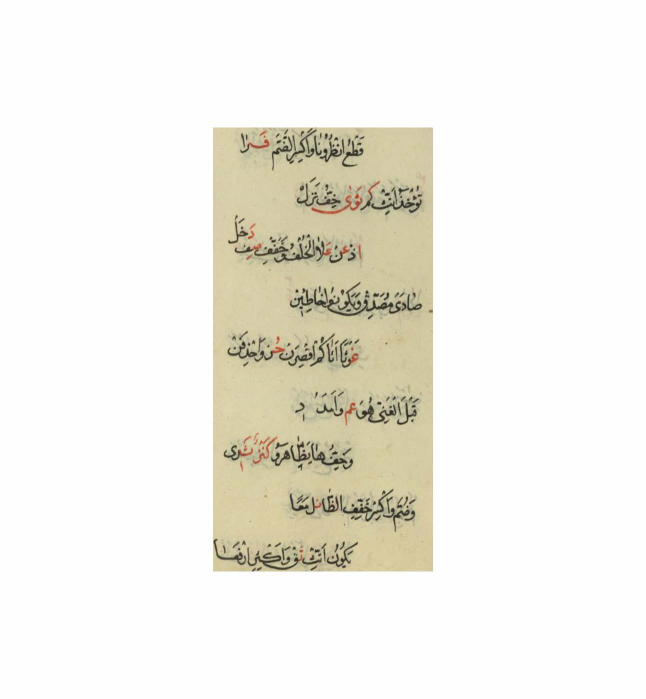 قَطْعُ انْظُرُونَا وَاكْسِرِ الضَّمَّ فَرَا
تُؤْخَذُ أَنِّثْ كَمْ ثَوَى خِفُّ نَزَلْ
اذ عن غلا الخلف وخفف صف دخل
صادى مصدق ويكونوا خاطبن
غوثا أتاكم اقصرن حز واحذفن
قَبْلَ الْغَنِيُّ هُوَ عَمَّ وَامْدُدْ
وخف ها يظاهروا كنز ثدى
وضم واكسر خفف الظا نل معا
يكون أنث ثق واكثر ارفعا